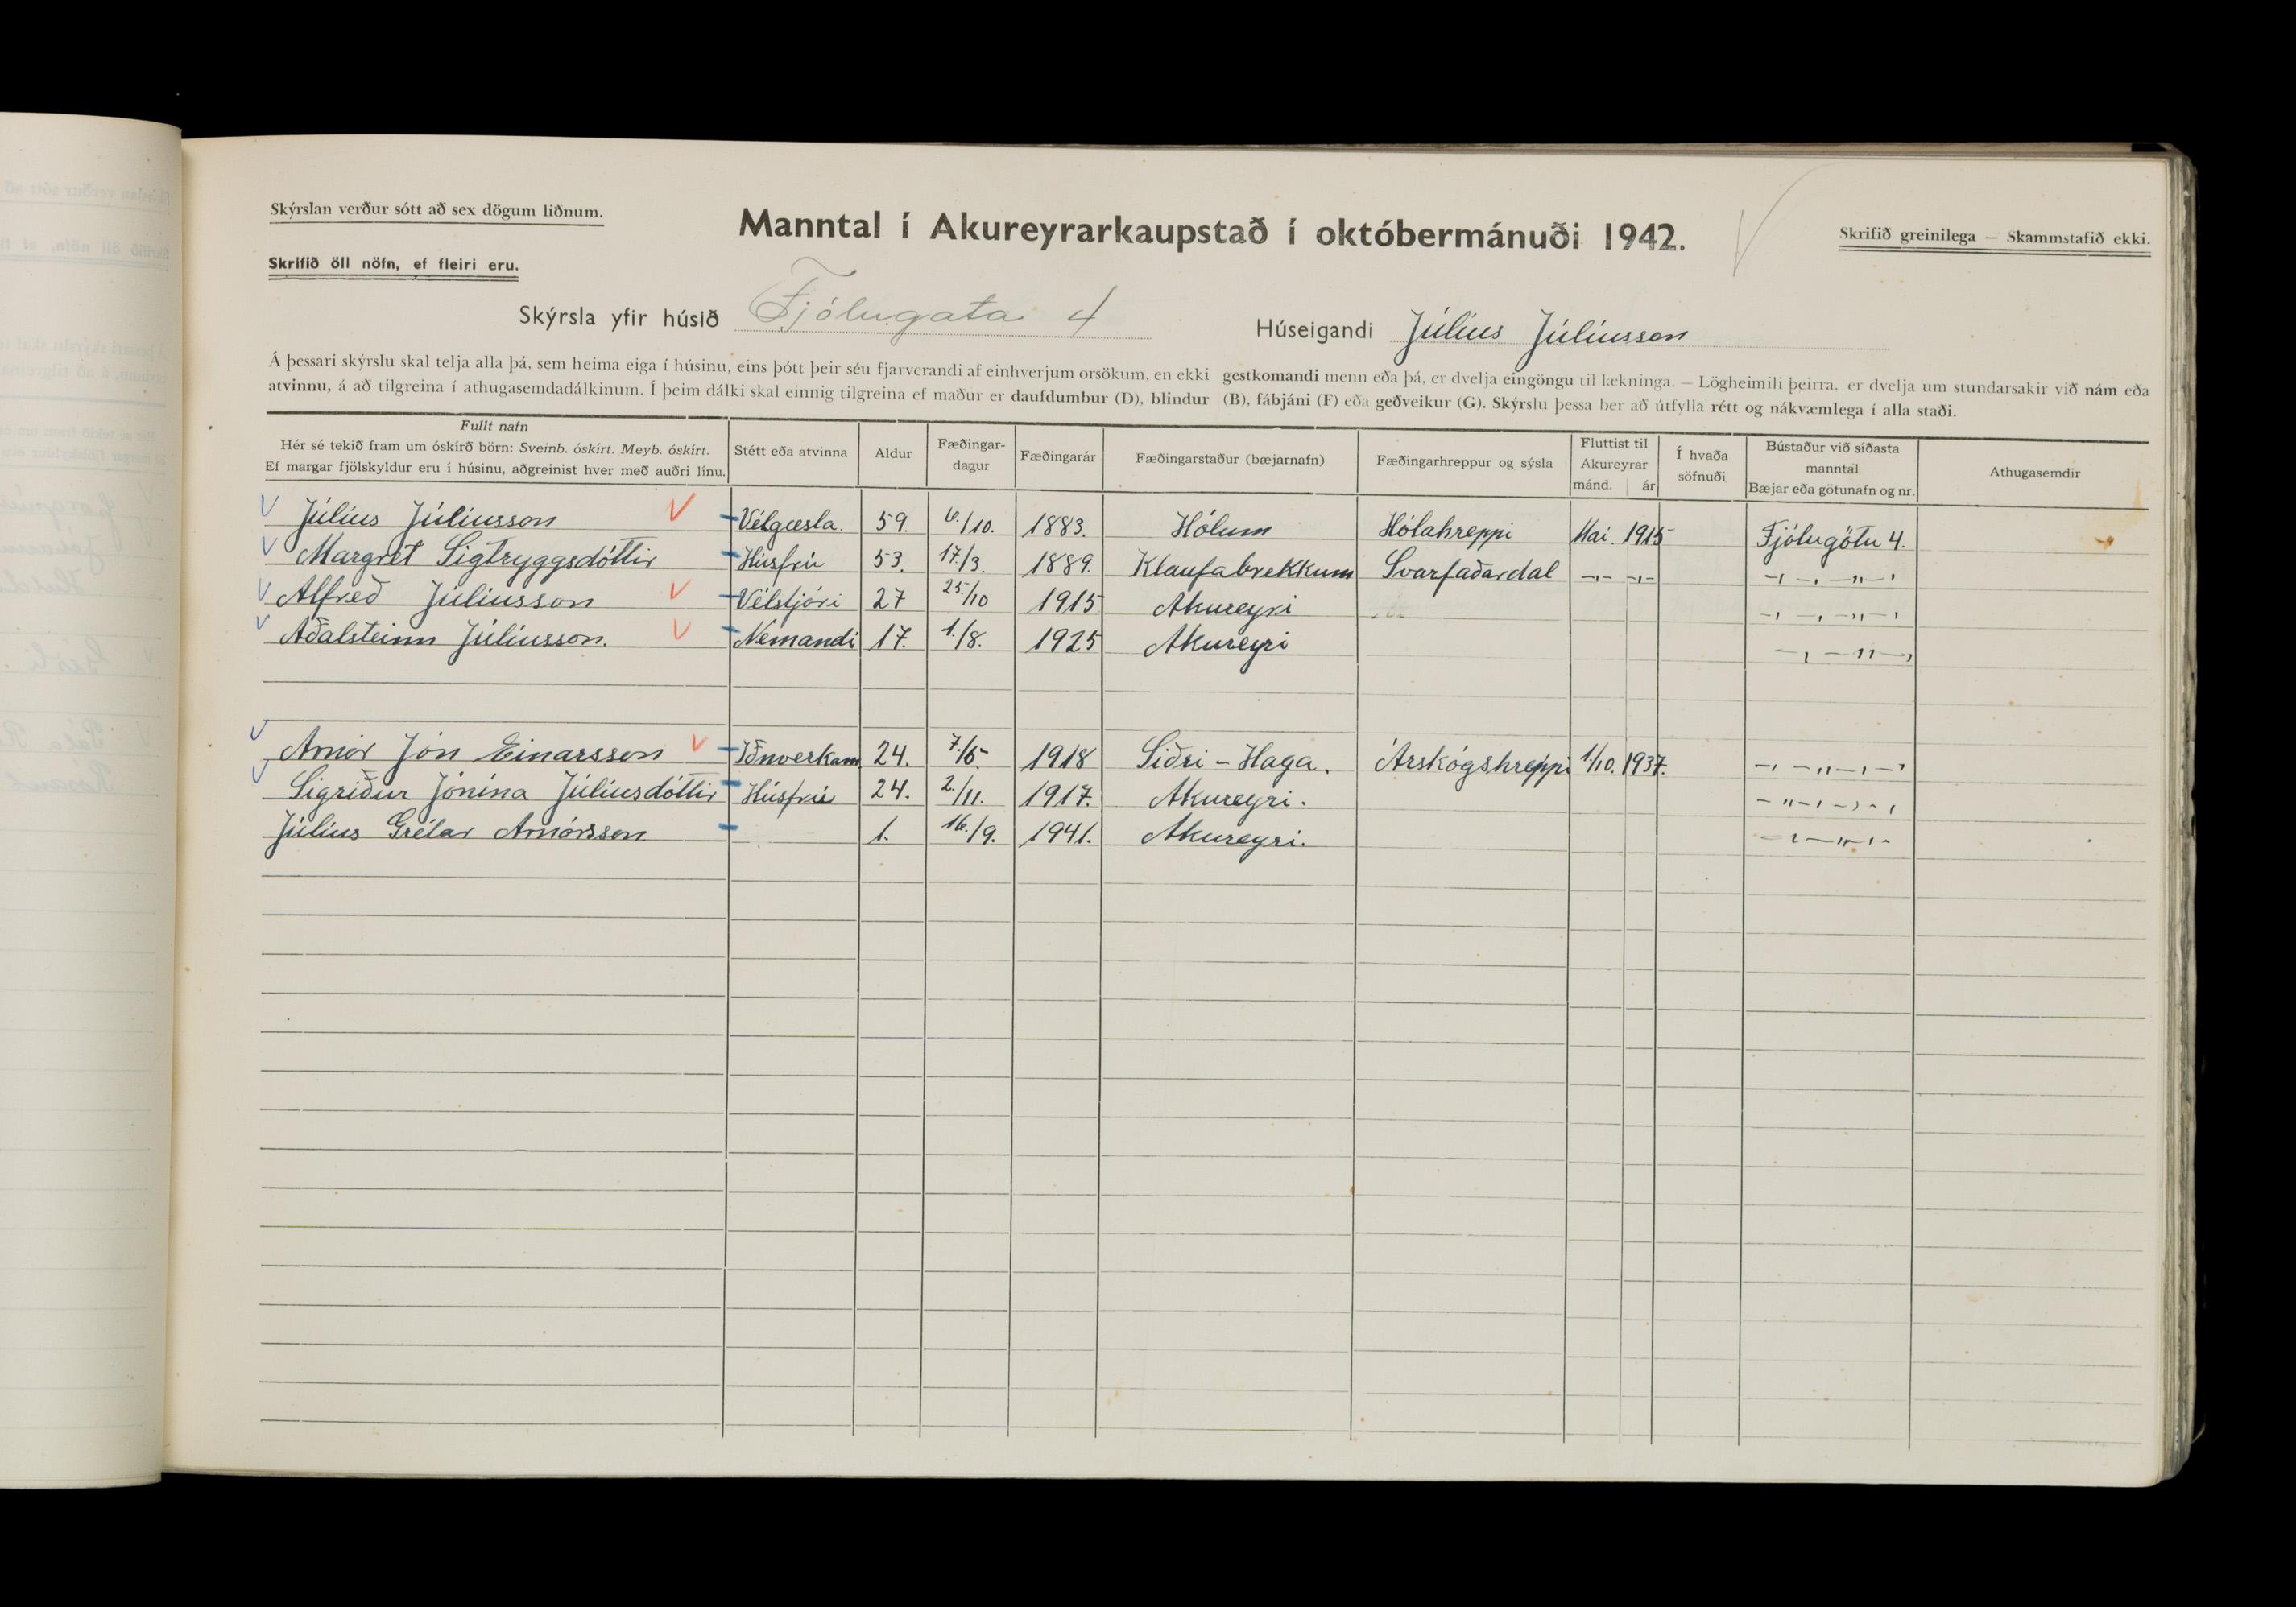 Skýrslan verður sótt að sex dögum liðnum.
Manntal í Akureyrarkaupstað í októbermánuði 1942.
Skrifið greinilega — Skammstafið ekki.
Skrifið öll nöfn, ef fleiri eru.
Skýrsla yfir húsið Fjólugata 4
Húseigandi Júlíus Júlíusson
Á þessari skýrslu skal telja alla þá, sem heima eiga í húsinu, eins þótt þeir séu fjarverandi af einhverjum orsökum, en ekki gestkomandi menn eða þá, er dvelja eingöngu til lækninga. — Lögheimili þeirra, er dvelja um stundarsakir við nám eða
atvinnu, á að tilgreina í athugasemdadálkinum. Í þeim dálki skal einnig tilgreina ef maður er daufdumbur (D), blindur (B), fábjáni (F) eða geðveikur (G). Skýrslu þessa ber að útfylla rétt og nákvæmlega í alla staði.
Fullt nafn
Hér sé tekið fram um óskírð börn: Sveinb. óskírt. Meyb. óskírt.
Ef margar fjölskyldur eru í húsinu, aðgreinist hver með auðri línu.
Stétt eða atvinna
Aldur
Fæðingar-
dagur
Fæðingarár
Fæðingarstaður (bæjarnafn)
Fæðingarhreppur og sýsla
Fluttist til
Akureyrar
mánd. ár
Í hvaða
söfnuði
Bústaður við síðasta
manntal
Bæjar eða götunafn og nr.
Athugasemdir
Júlíus Júlíusson Vélgæsla. 59. 6./10. 1883. Hólum Hólahreppi Mai. 1915 Fjólugötu 4.
Margrét Sigtryggsdóttir Húsfrú 53. 17/3. 1889. Klaufabrekkum Svarfaðardal -"- -"- -"-"-
Alfreð Júlíusson Vélstjóri 27 25/10 1915 Akureyri -"-"-
Aðalsteinn Júlíusson. Nemandi 17. 1./8. 1925 Akureyri -"-"-
Arnór Jón Einarsson Iðnverkam 24. 7./5. 1918 Siðri-Haga. Árskógshreppi 1/10. 1937. -"-"-
Sigriður Jónína Júlíusdóttir Húsfrú 24. 2./11. 1917. Akureyri. -"-"-
Júlíus Grétar Arnórsson 1. 16./9. 1941. Akureyri. -"-"-